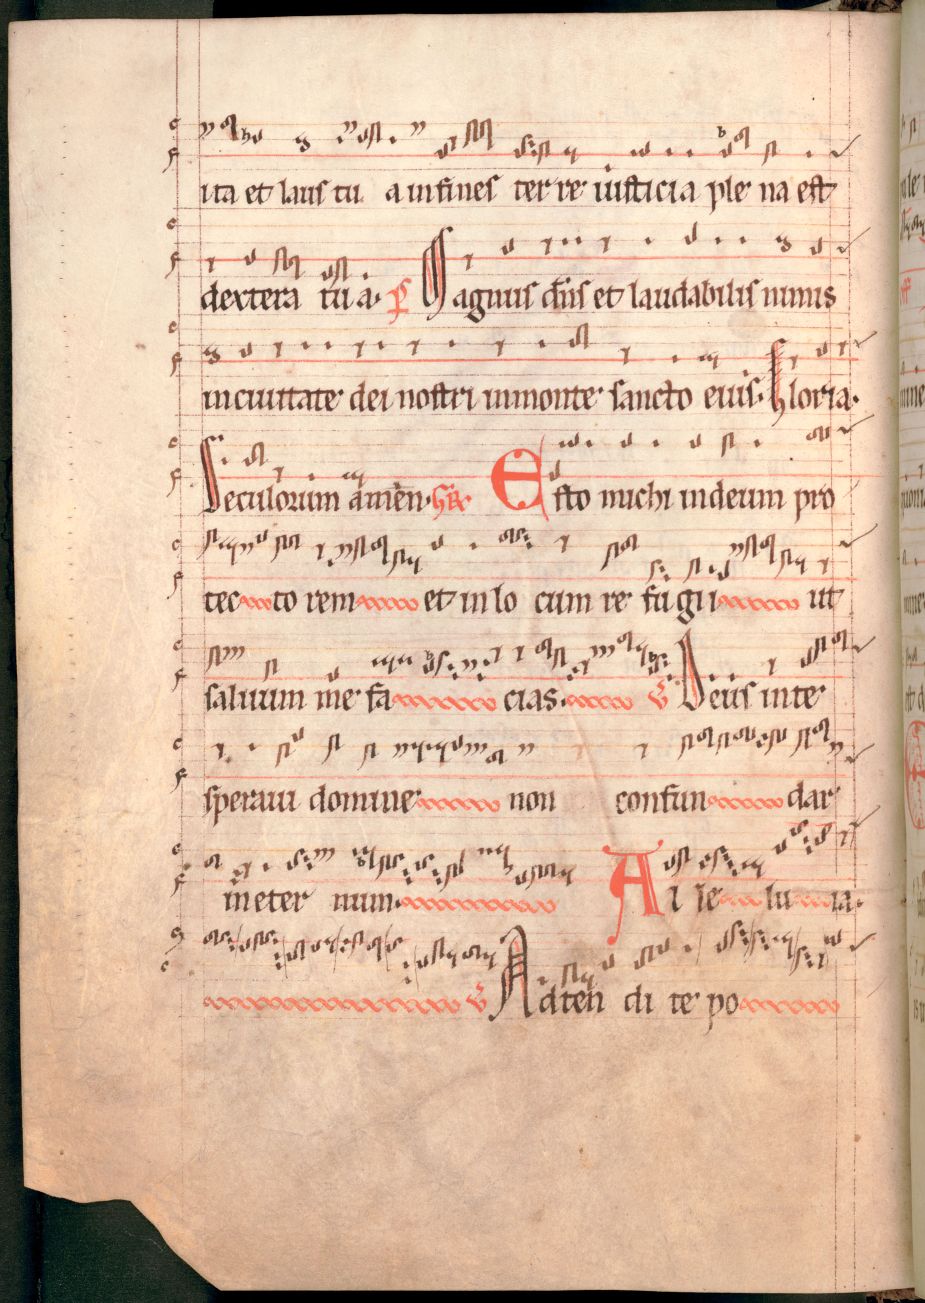 ita et laus tu a in fines ter re iusticia ple na est
dextera tu a. ps Magnus dns et laudabilis nimis
in ciuitate dei nostri in monte sancto eius. Gloria.
Seculorum amen. Gr Esto michi in deum pro
tec to rem et in lo cum re fu gii ut
saluum me fa cias. v Deus in te
speraui domine non confun dar
in eter num. Al le lu ia.
v Adten di te po